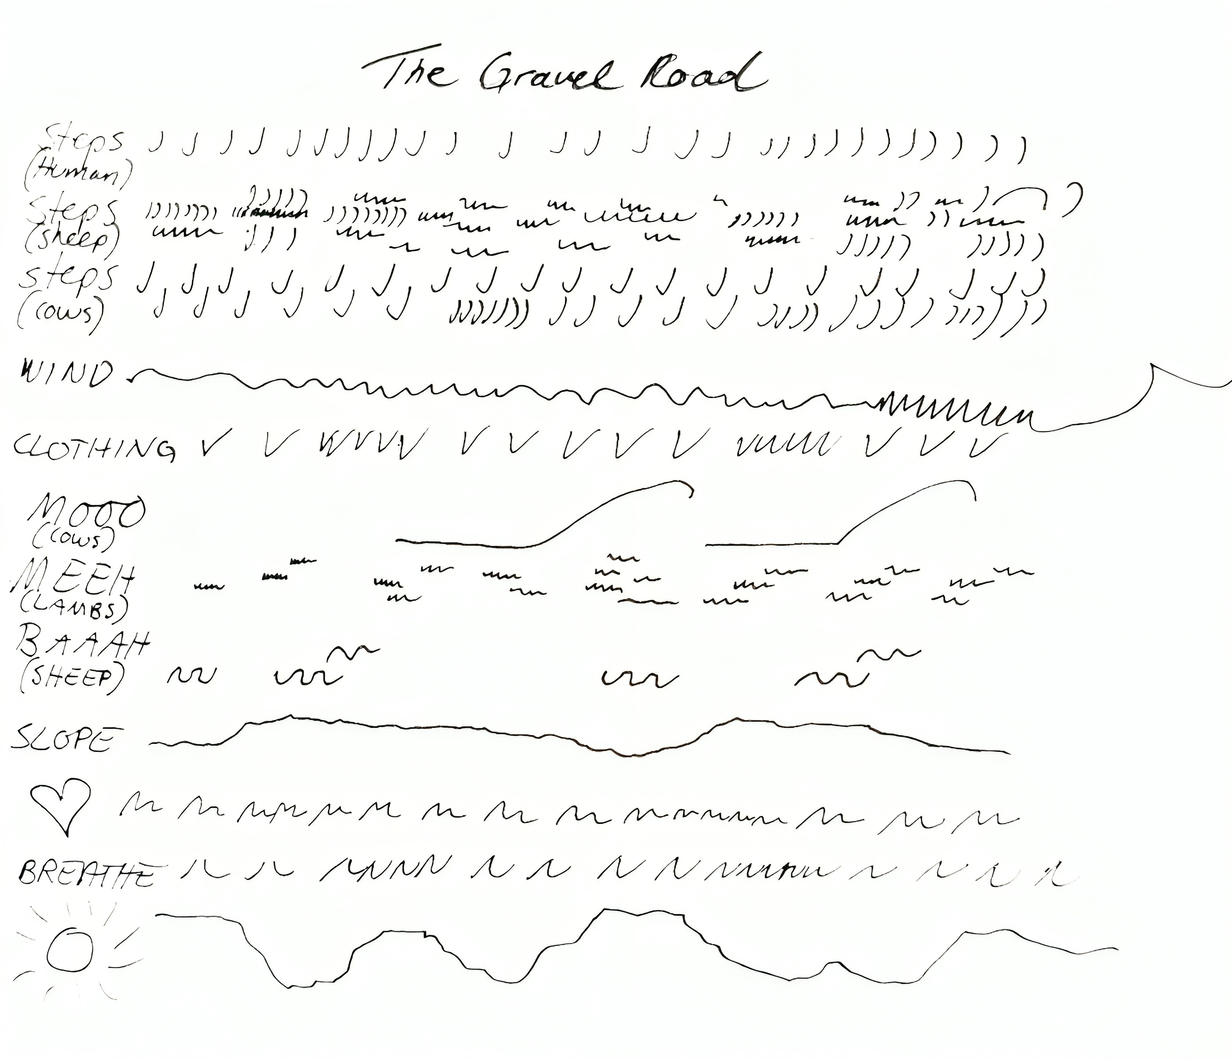 The Gravel Road
Steps
(Human)
Steps
(sheep)
Steps
(cows)
WIND
CLOTHING
MOOO
(COWS)
MEEH
(LAMBS)
BAAAH
(SHEEP)
SLOPE
BREATHE